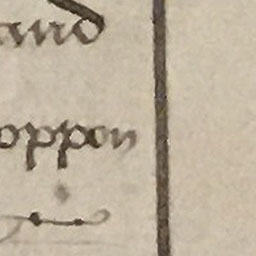 and
oppen